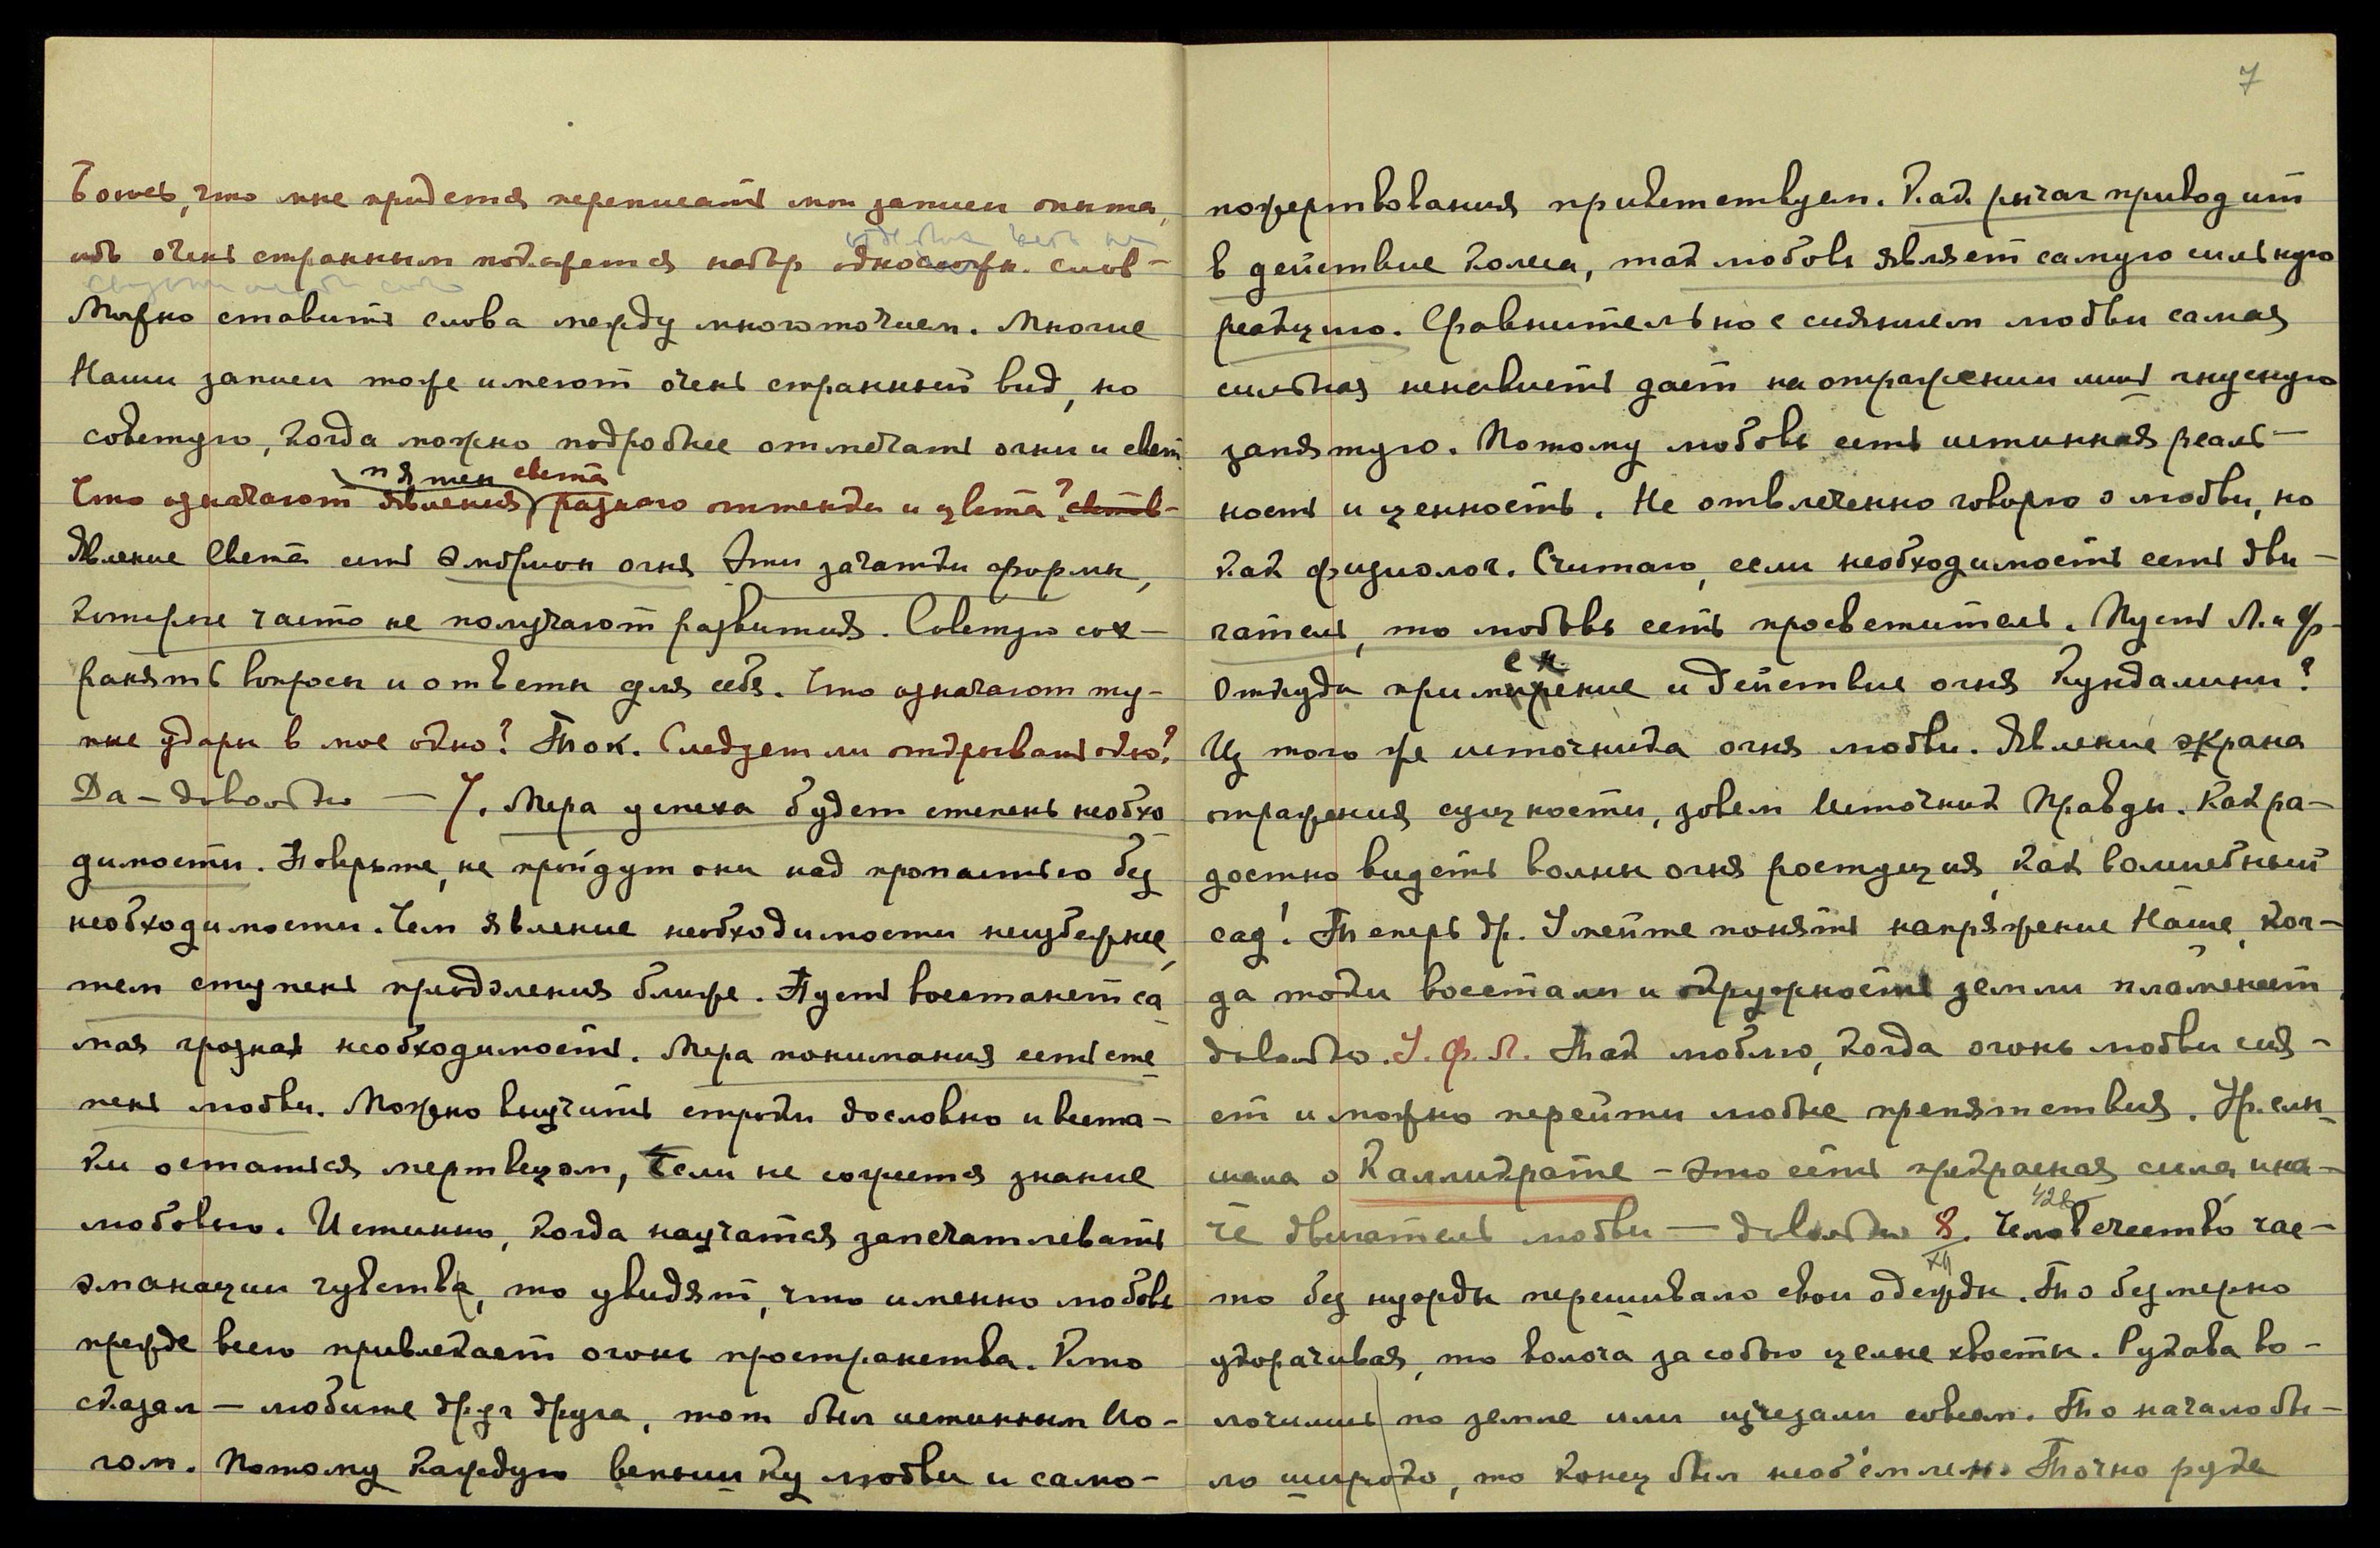 Боюсь, что мне придется переписать мои записи опыта,
ибо очень странным покажется набор слов –
Можно ставить слова между многоточием. Многие
Наши записи тоже имеют очень странный вид, но
советую, когда можно подробнее отмечать огни и свет.
пятен света
Что означают явления разного оттенка и цвета?
Явление Света есть эмбрион огня Эти зачатки формы,
которые часто не получают развития. Советую сох-
ранять вопросы и ответы для себя. Что означают ту-
пые удары в мое окно? Ток. Следует ли открывать окно?
Да – довольно — 7. Мера успеха будет степень необхо
димости. Поверьте, не пройдут они над пропастью без
необходимости. Чем явление необходимости неизбежнее,
тем ступень приближения ближе. Пусть восстанет са
мая грозная необходимость. Мера понимания есть сте
пень любви. Можно выучить строки дословно и вста-
ки остаться мертвецом, если не согреется знание
любовью. Истинно, когда научатся запечатлевать
эманации чувства, то увидят, что именно любовь
прежде всего привлекает огонь пространства. Кто
сказал – любите друг друга, тот был истинным Ио-
гом. Потому каждую вспышку любви и само-
7
пожертвования приветствуем. Как рычаг приводит
в действие колеса, так любовь являет самую сильную
реакцию. Сравнительно с сиянием любви самая
сильная ненависть дает на отражении лишь гнусную
запятую. Потому любовь есть истинная реаль-
ность и ценность. Не отвлеченно говорю о любви, но
как физиолог. Считаю, если необходимость есть дви-
гатель, то любовь есть просветитель. Пусть Л. и Ф.
Откуда применение и действие огня Кундалини?
Из того же источника огня любви. Явление экрана
отражения сущности, зовем Источник Правды. Как ра-
достно видеть волны огня растущия, как волшебный
сад! Теперь др. Умейте понять напряжение Наше, ког-
да токи восстали и окружность земли пламенеет,
довольно. У. Ф. Л. Так люблю, когда огонь любви сия-
ет и можно перейти любые препятствия. Ур. слы-
шала о Калликрате – это есть прекрасная сила, ина-
че двигатель любви — довольно 8. Человечество час-
428
XII
то без нужды перешивало свои одежды. То безмерно
укорачивая, то волоча за собою целые хвосты. Рукава во-
лочились по земле или изчезали совсем. То начало бы-
ло широко, то конец был необ'емлем. Точно руки